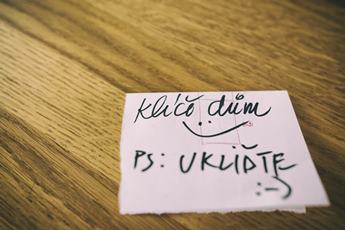 Klíč dům
PS: UKLIĎTE
:-)